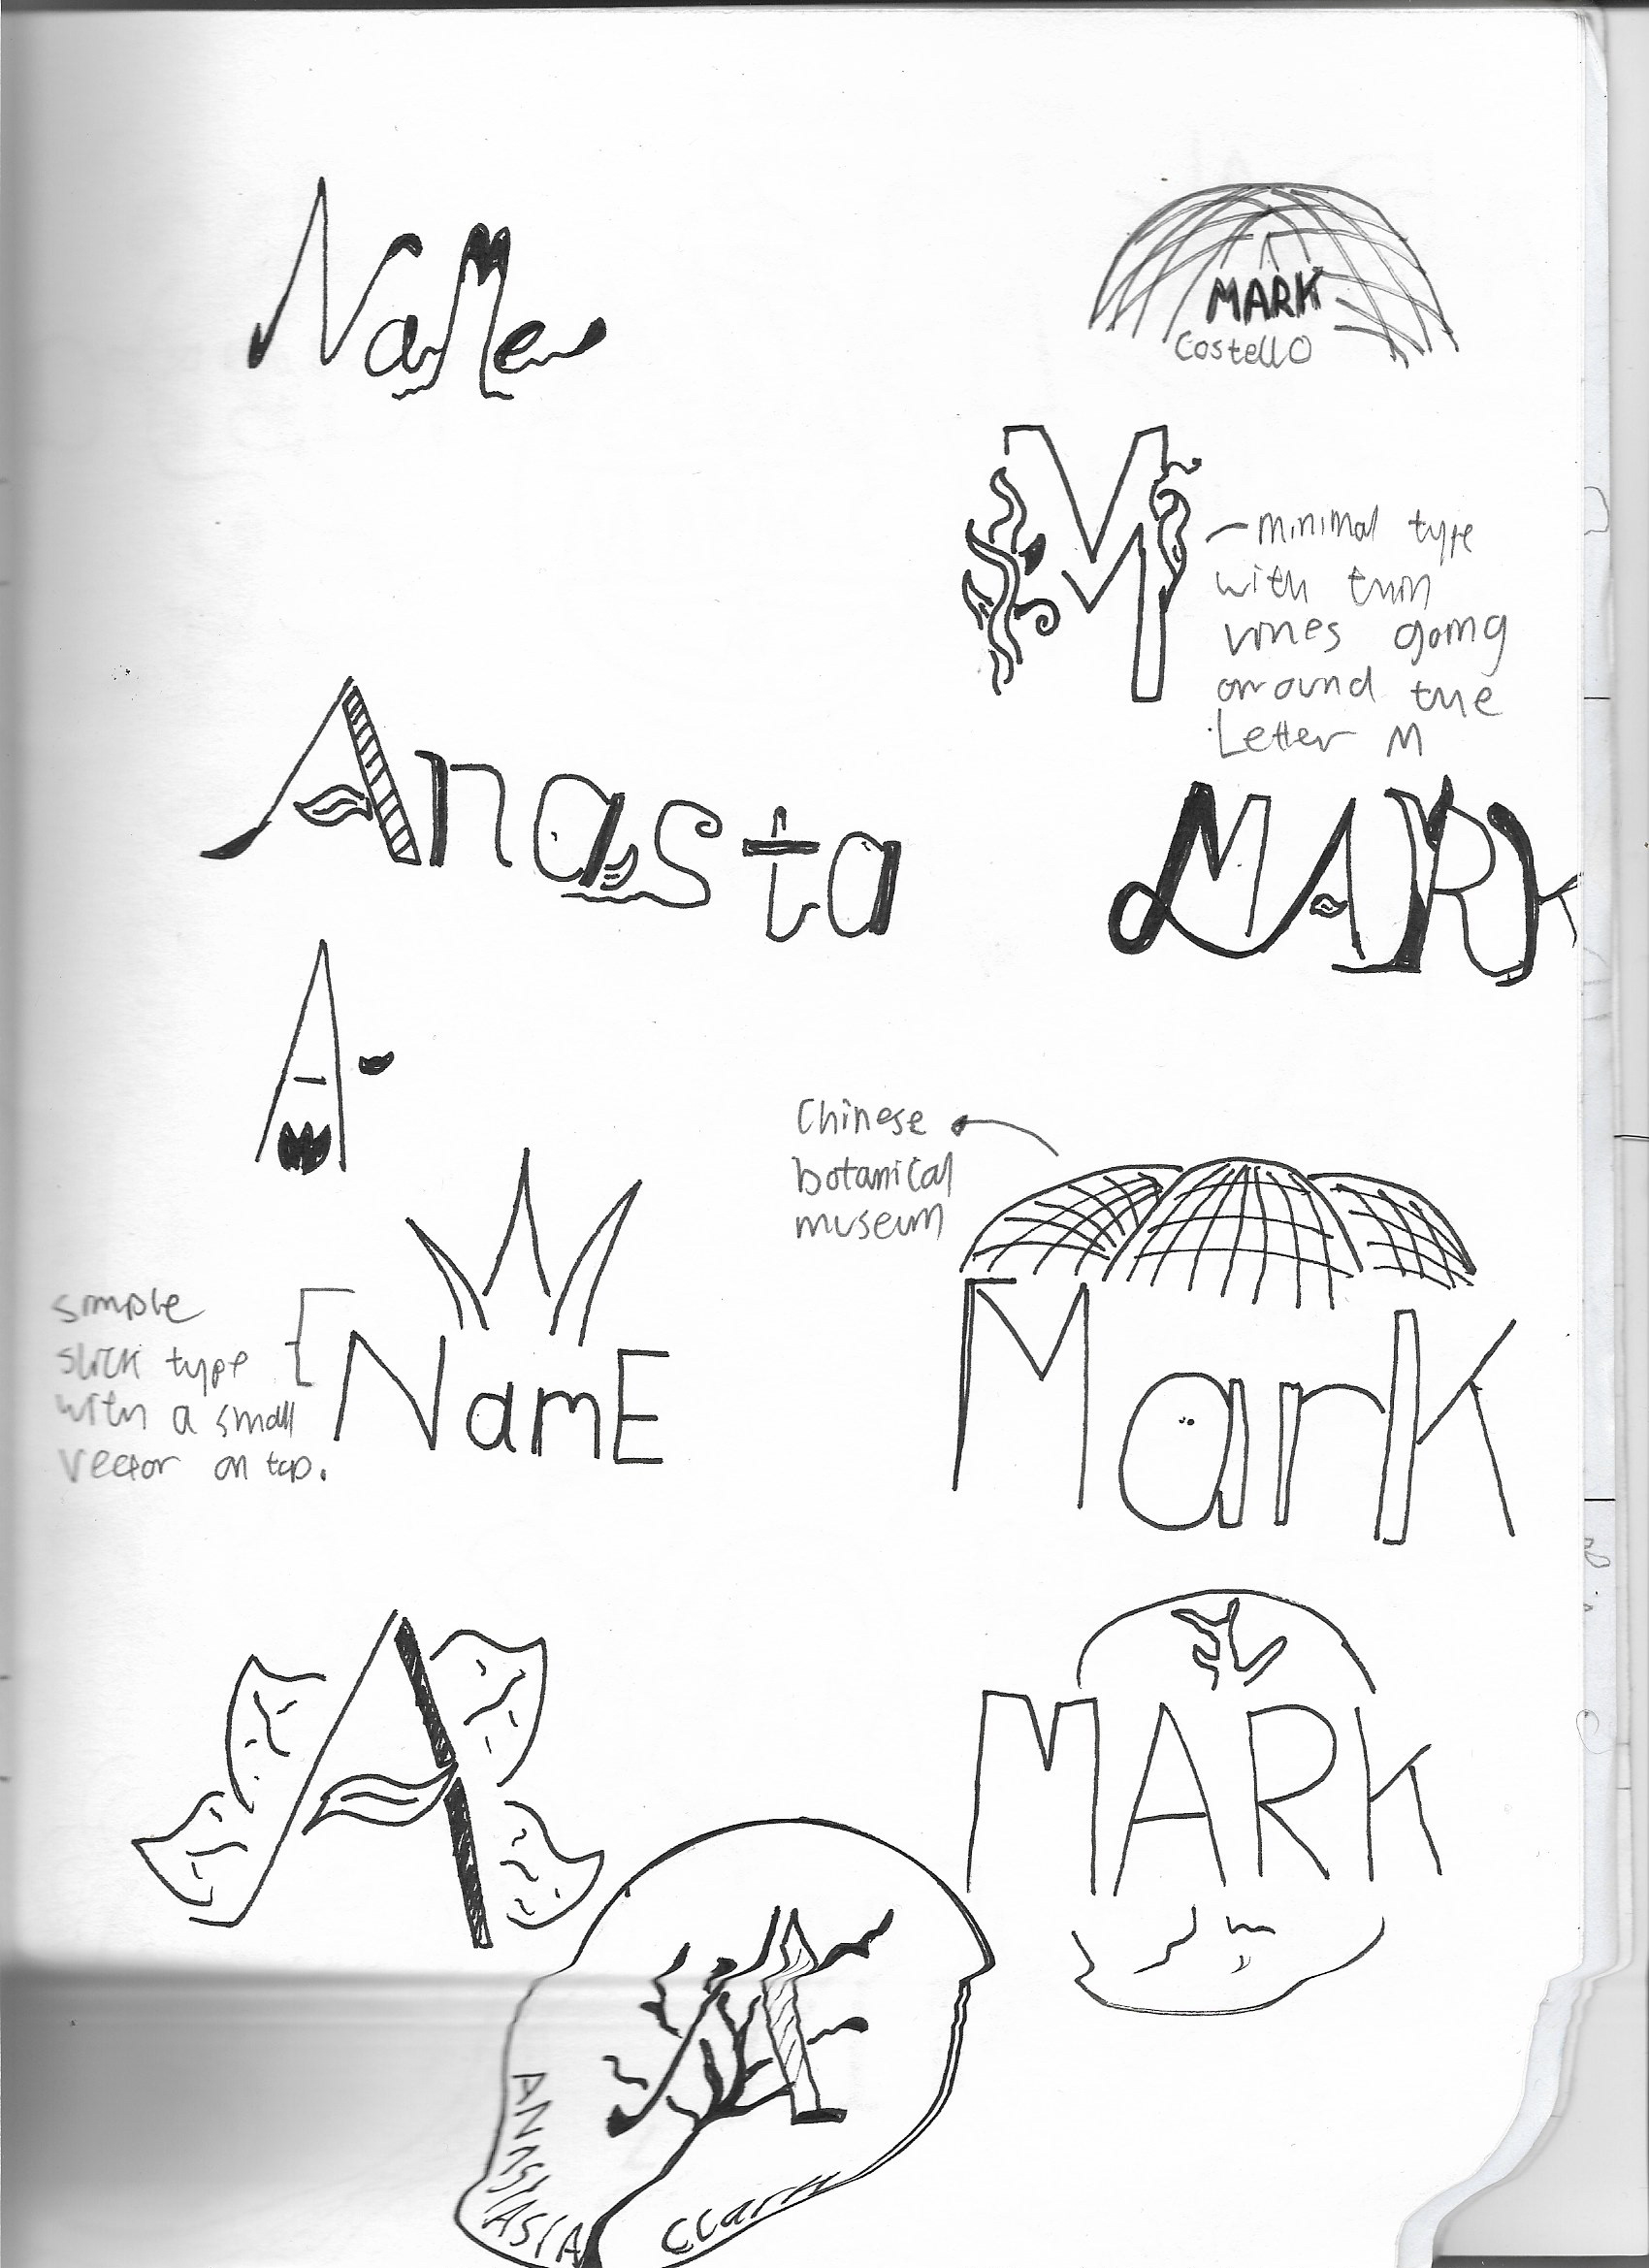 NaMe
MARK
Costello
M
minimal type
with thin
vines going
around the
Letter M
Anasta
MARK
A
Chinese
botanical
museum
simple
slick type
with a small
vector on top.
NamE
Mark
A
MARK
A
ANASTASIA